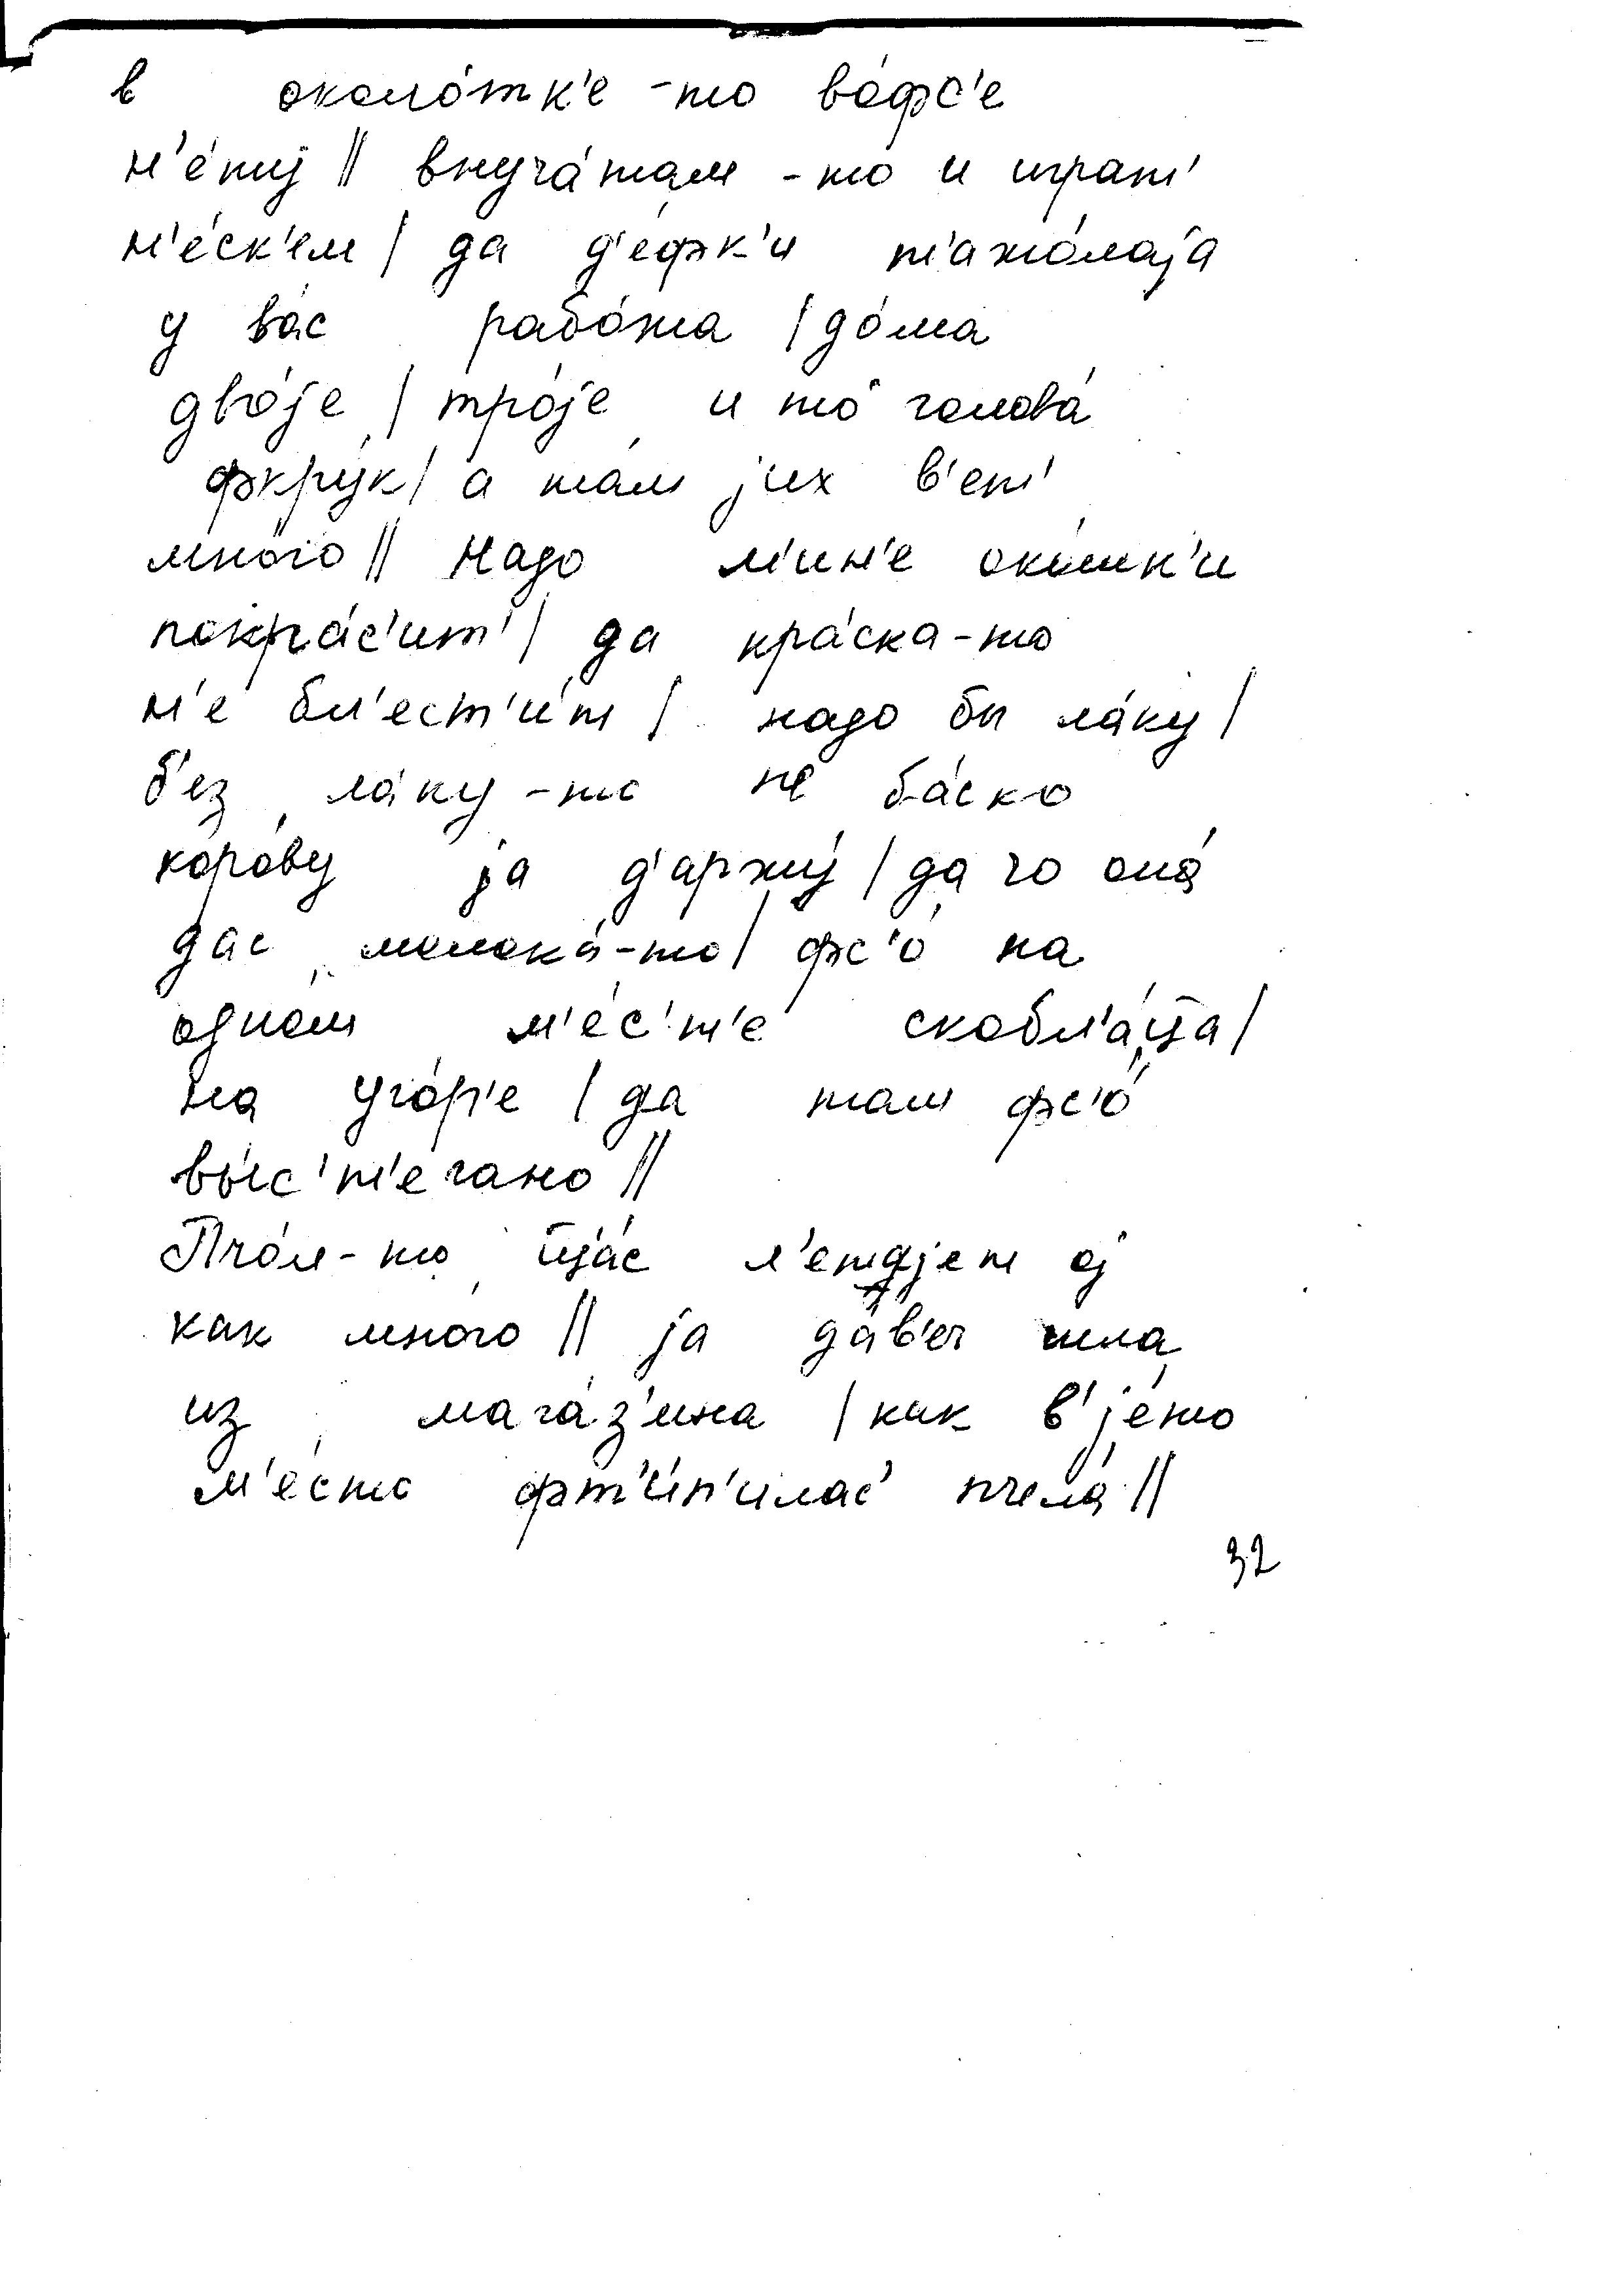 в околóтк'е -то вóфс'е
н'éту || внучáтам -то и играт'
н'éск'ем | да д'éфк'и т'ажóлаjа
у вáс рабóта | дóма
двójе | трójе и тó головá
фкрýк | а тáм jих в'ет'
мнóго || Надо м'ин'е окóшк'и
покрáс'ит' | да крáска-то
н'е бл'ест'úт | надо бы лáку |
б'ез лáку -то не бáско
корóву jа д'аржý | да чо онá
дас молокá-то | фс'ó на
одном м'éс'т'е скобл'áца |
на угóр'е | да там фс'ó
вы́с'т'егано ||
Пчóл-то щáс л'етаjет оj
как мнóго || jа дáв'еч шла
из магáз'ина | как в'jéто
м'éсто фт'úп'илас' пчелá ||
32